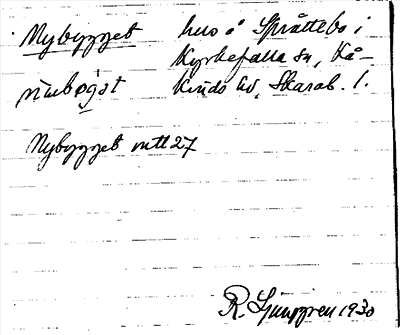 Nybygget hus å Språttebo i
Kyrkefalla sn, Kå-
kinds hd, Skarab. l.
Nybygget mtl 27
R. Ljunggren 1930